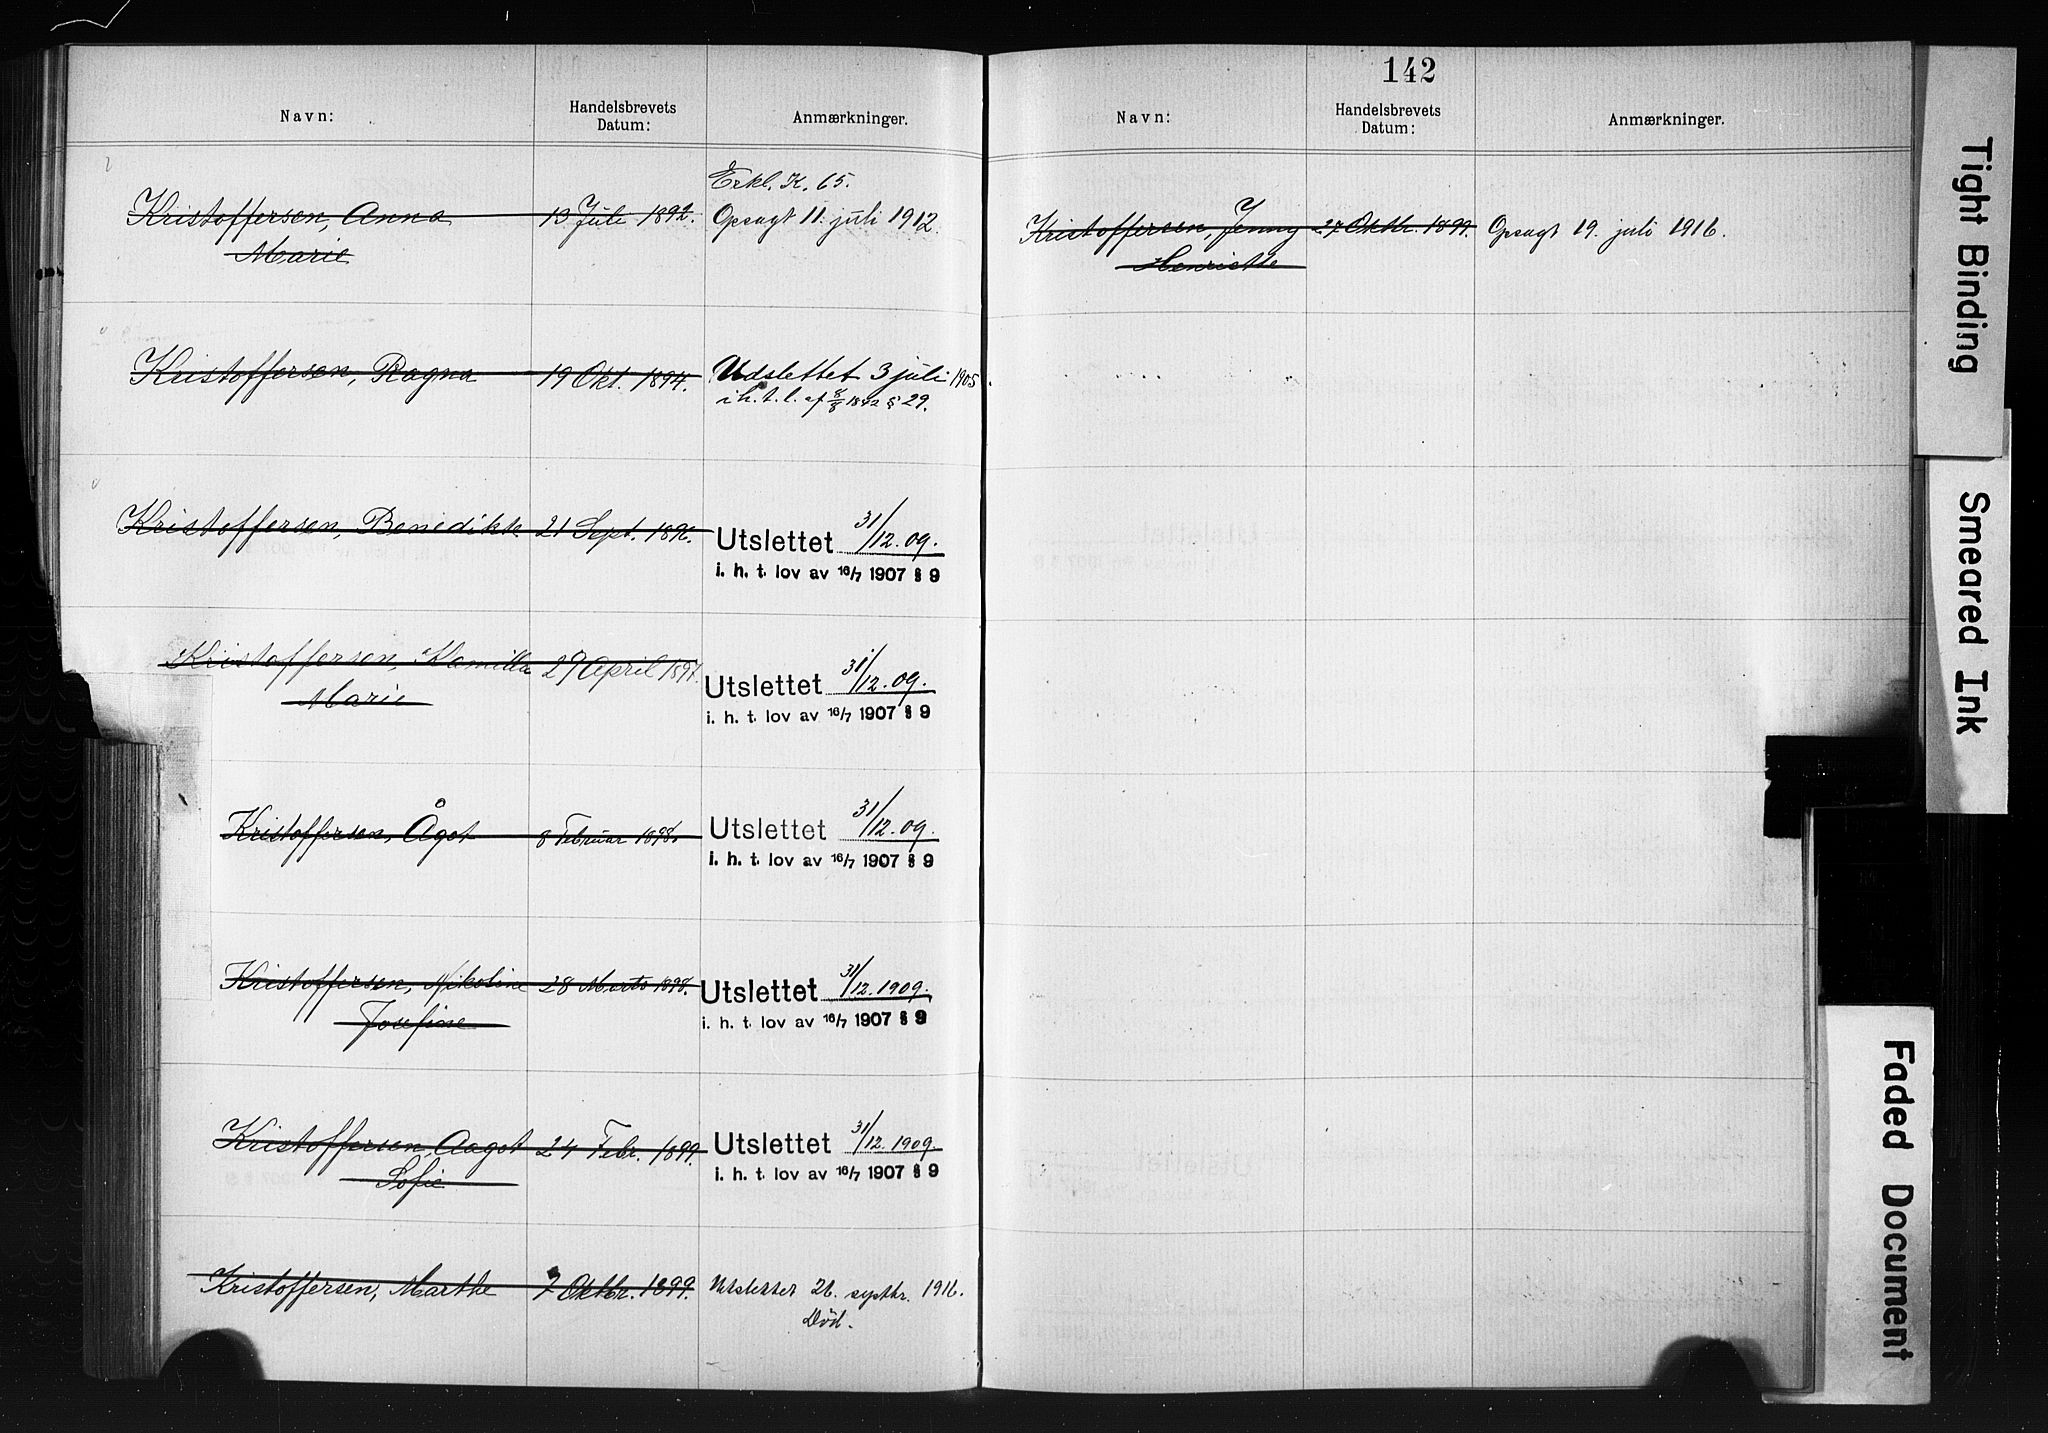 Navn:
Handelsbrevets
Datum:
Anmærkninger.
Erkl. K. 65.
Kristoffersen, Anna 13 Juli 1892. Opsagt 11. juli 1912.
Marie
Kristoffersen, Ragna 19 Okt. 1894. Udslettet 3 juli 1905
i h. t. l. af 8/8 1842 § 29.
Kristoffersen, Benedikte 21 Sept. 1896. Utslettet 31/12. 09.
i. h. t. lov av 16/7 1907 § 9
Kristoffersen, Kamilla 27 April 1897. Utslettet 31/12. 09.
Marie
i. h. t. lov av 16/7 1907 § 9
Kristoffersen, Ågot 8 Februar 1898. Utslettet 31/12. 09.
i. h. t. lov av 16/7 1907 § 9
Kristoffersen, Nikoline 28 Marts 1898. Utslettet 31/12. 1909.
Josefine
i. h. t. lov av 16/7 1907 § 9
Kristoffersen, Aagot 24 Febr. 1899. Utslettet 31/12. 1909.
Sofie
i. h. t. lov av 16/7 1907 § 9
Kristoffersen, Marthe 7 Oktbr. 1899. Utslettet 26. septbr. 1916.
Död.
142
Navn:
Handelsbrevets
Datum:
Anmærkninger.
Kristoffersen, Jenny 27 Oktbr. 1899. Opsagt 19. juli 1916.
Henriette
Tight Binding
Smeared Ink
Faded Document